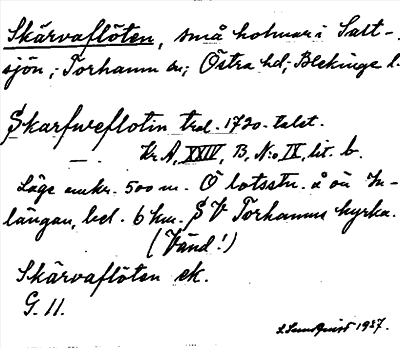 Skärvaflöten, små holmar i Salt-
sjön; Torhamn sn; Östra hd; Blekinge l.
Skarfweflotin trol. 1720-talet.
Kr. A, XXIV, B, N:o IX, lit. b.
Läge omkr. 500 m. Ö lotsstn. å ön In-
längan, bel. 6 km. SV Torhamns kyrka.
(Vänd!)
Skärvaflöten ek.
G. 11.
S. Lundquist 1937.